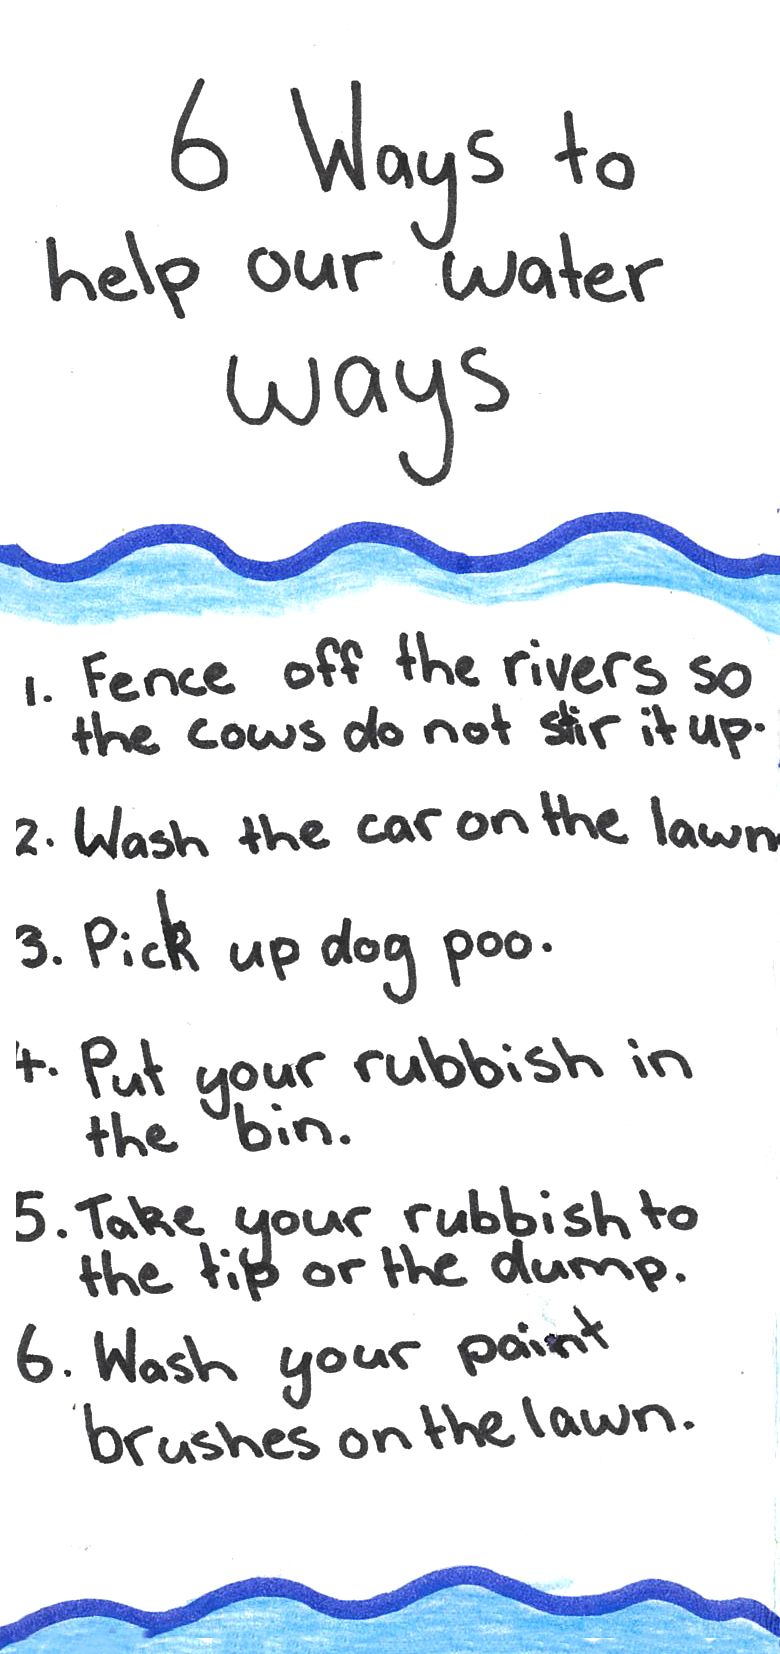 6 Ways to
help our water
ways
1. Fence off the rivers so
the cows do not stir it up.
2. Wash the car on the lawn
3. Pick up dog poo.
4. Put your rubbish in
the bin.
5. Take your rubbish to
the tip or the dump.
6. Wash your paint
brushes on the lawn.